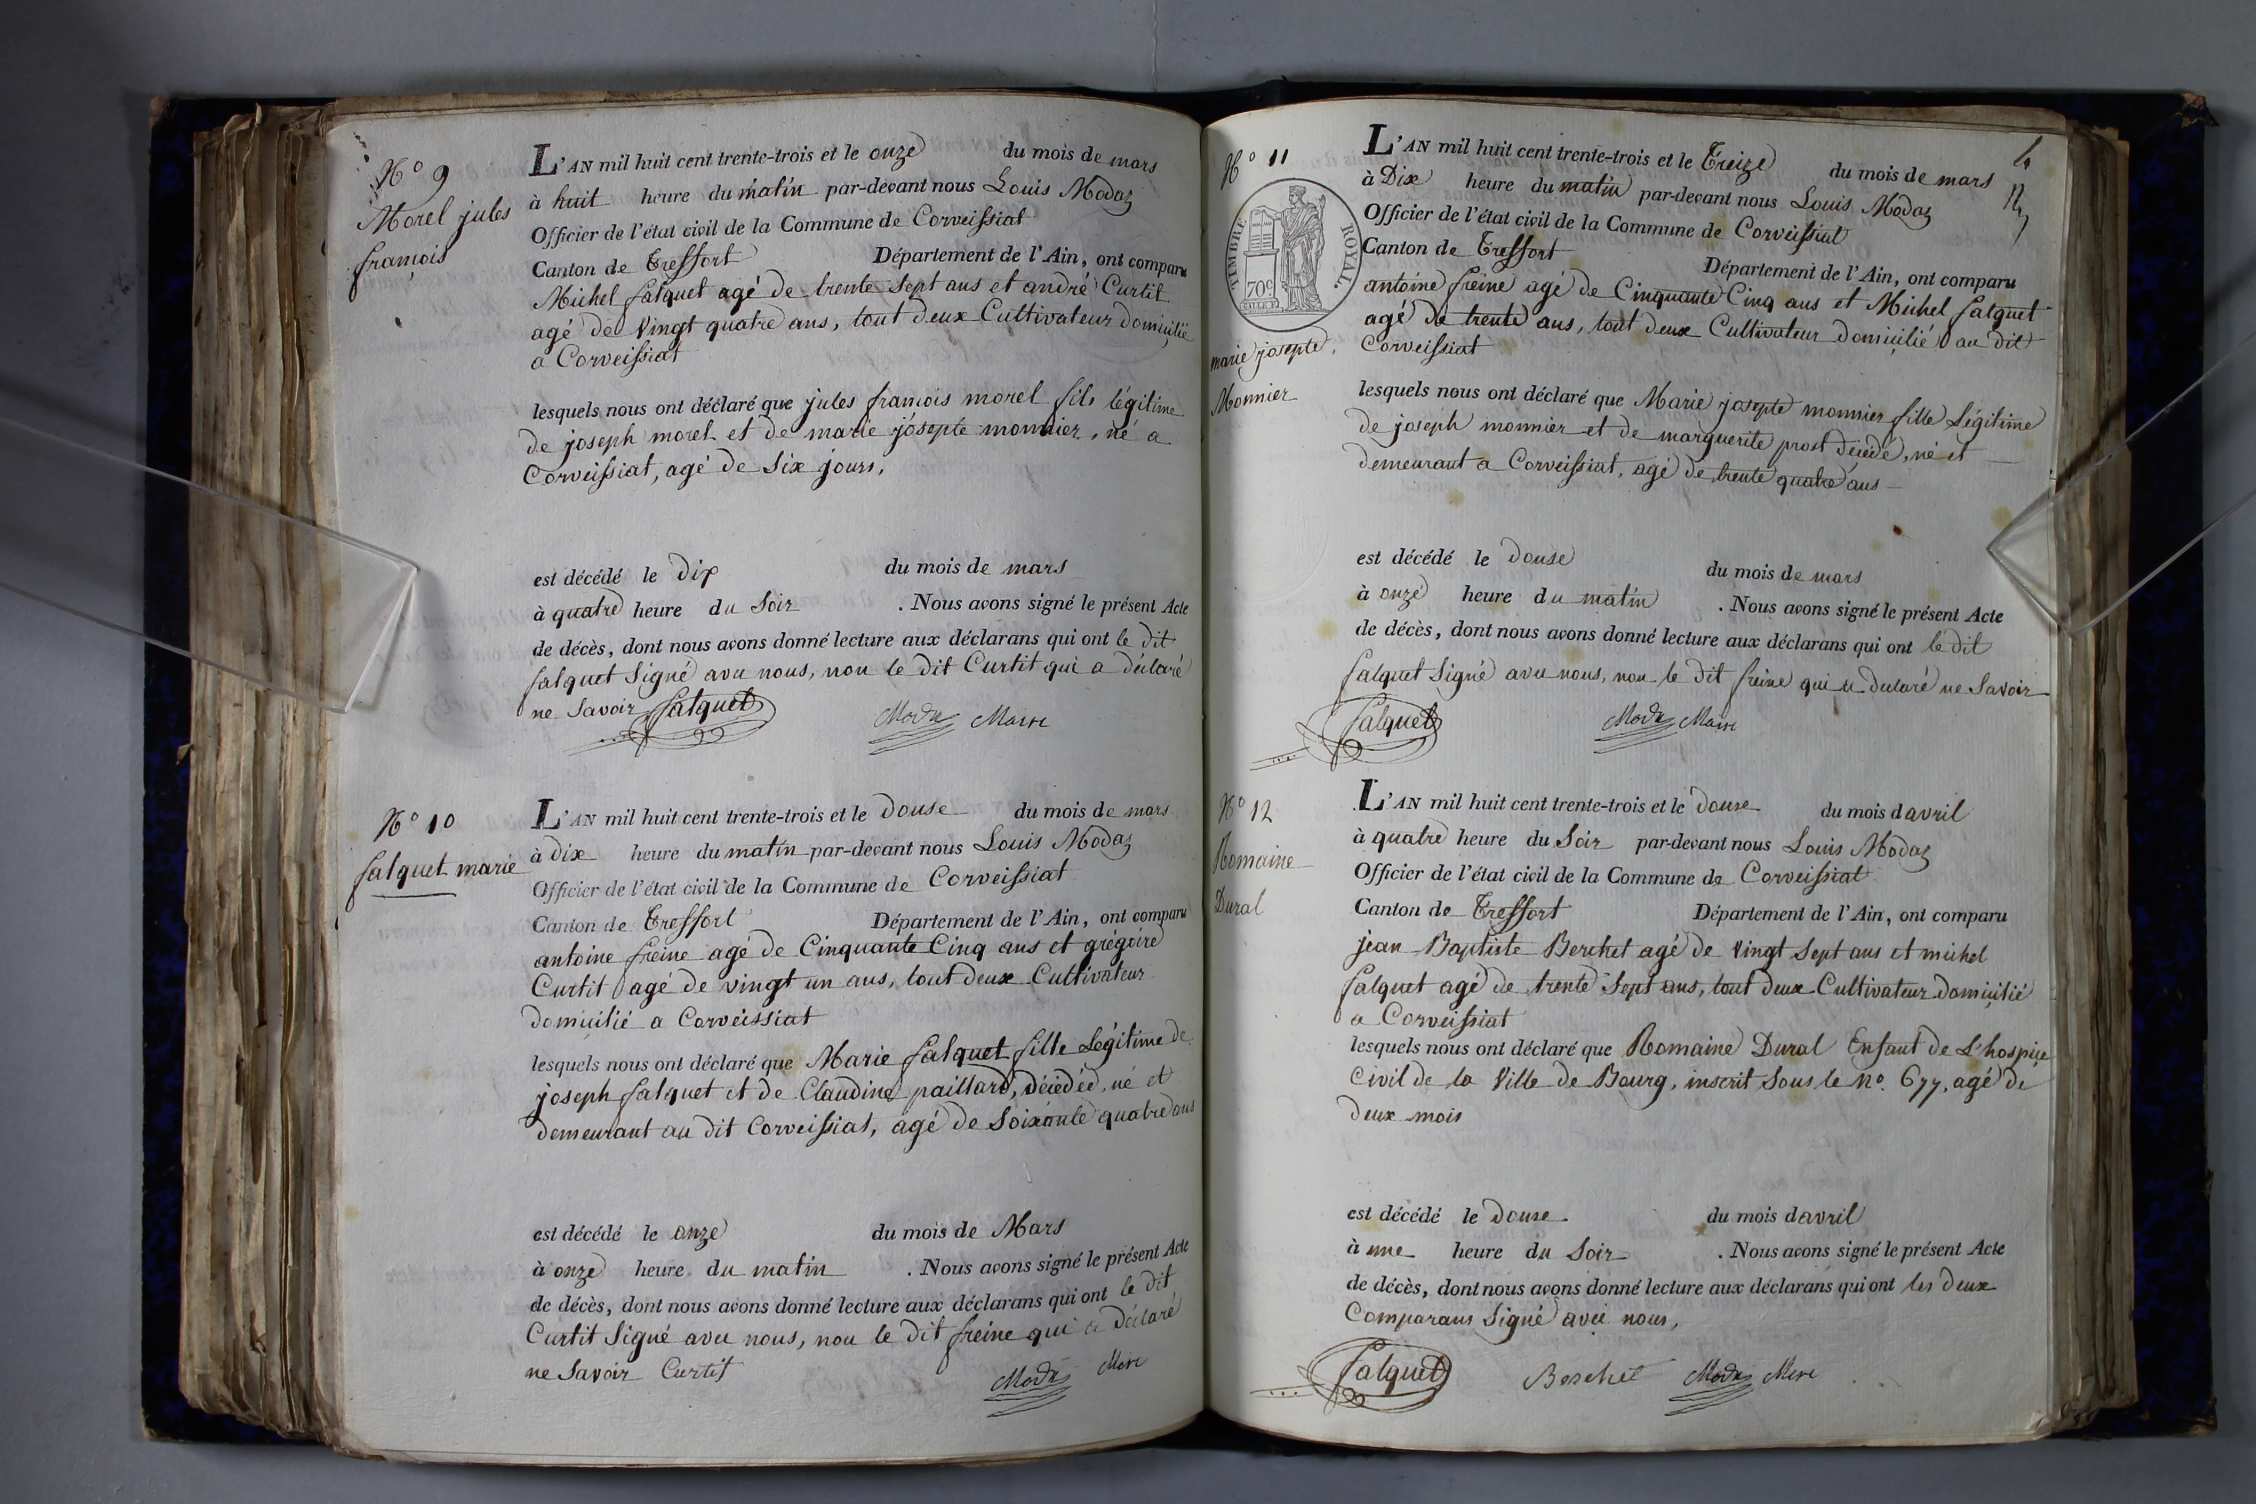 N° 9
Morel jules
francois
L'AN mil huit cent trente-trois et le onze du mois de mars
à huit heure du matin par-devant nous Louis Modaz
Officier de l'état civil de la Commune de Corveissiat
Canton de Treffort Département de l'Ain, ont comparu
Michel falquet agé de trente Sept ans et andré Curtit
agé de Vingt quatre ans, tout deux Cultivateur domicilié
a Corveissiat
lesquels nous ont déclaré que jules francois morel fils légitime
de joseph morel et de marie josepte monnier, né a
Corveissiat, agé de Six jours,
est décédé le dix du mois de mars
à quatre heure du Soir . Nous avons signé le présent Acte
de décès, dont nous avons donné lecture aux déclarans qui ont le dit
falquet Signé avec nous, non le dit Curtit qui a déclaré
ne Savoir falquet Modaz Maire
N° 10
falquet marie
L'AN mil huit cent trente-trois et le douse du mois de mars
à dix heure du matin par-devant nous Louis Modaz
Officier de l'état civil de la Commune de Corveissiat
Canton de Treffort Département de l'Ain, ont comparu
antoine freine agé de Cinquante Cinq ans et grégoire
Curtit agé de vingt un ans, tout deux Cultivateur
domicilié a Corveissiat
lesquels nous ont déclaré que Marie falquet fille Légitime de
joseph falquet et de Claudine paillard, décédée, né et
demeurant au dit Corveissiat, agé de Soixante quatre ans
est décédé le onze du mois de Mars
à onze heure du matin . Nous avons signé le présent Acte
de décès, dont nous avons donné lecture aux déclarans qui ont le dit
Curtit Signé avec nous, non le dit freine qui a déclaré
ne Savoir Curtit Modaz Mere
N° 11
TIMBRE ROYAL.
70c
marie josepte
Monnier
L'AN mil huit cent trente-trois et le Treize du mois de mars
à Dix heure du matin par-devant nous Louis Modaz
Officier de l'état civil de la Commune de Corveissiat
Canton de Treffort Département de l'Ain, ont comparu
antoine freine agé de Cinquante Cinq ans et Michel falquet
agé de trente ans, tout deux Cultivateur domicilié au dit
Corveissiat
lesquels nous ont déclaré que Marie josepte monnier fille Légitime
de joseph monnier et de marguerite prost décédé, né et
demeurant a Corveissiat, agé de trente quatre ans
est décédé le douse du mois de mars
à onze heure du matin . Nous avons signé le présent Acte
de décès, dont nous avons donné lecture aux déclarans qui ont le dit
falquet Signé avec nous, non le dit freine qui a declaré ne Savoir
falquet Modaz Maire
N° 12
Romaine
Dural
L'AN mil huit cent trente-trois et le douse du mois d avril
à quatre heure du Soir par-devant nous Louis Modaz
Officier de l'état civil de la Commune de Corveissiat
Canton de Treffort Département de l'Ain, ont comparu
jean Baptiste Berchet agé de Vingt Sept ans et michel
falquet agé de trente Sept ans, tout deux Cultivateur domicilié
a Corveissiat
lesquels nous ont déclaré que Romaine Dural Enfant de L'hospice
Civil de la Ville de Bourg, inscrit Sous le n°. 677, agé de
deux mois
est décédé le douse du mois d avril
à une heure du Soir . Nous avons signé le présent Acte
de décès, dont nous avons donné lecture aux déclarans qui ont les deux
Comparans Signé avec nous,
falquet Berchet Modaz Mere